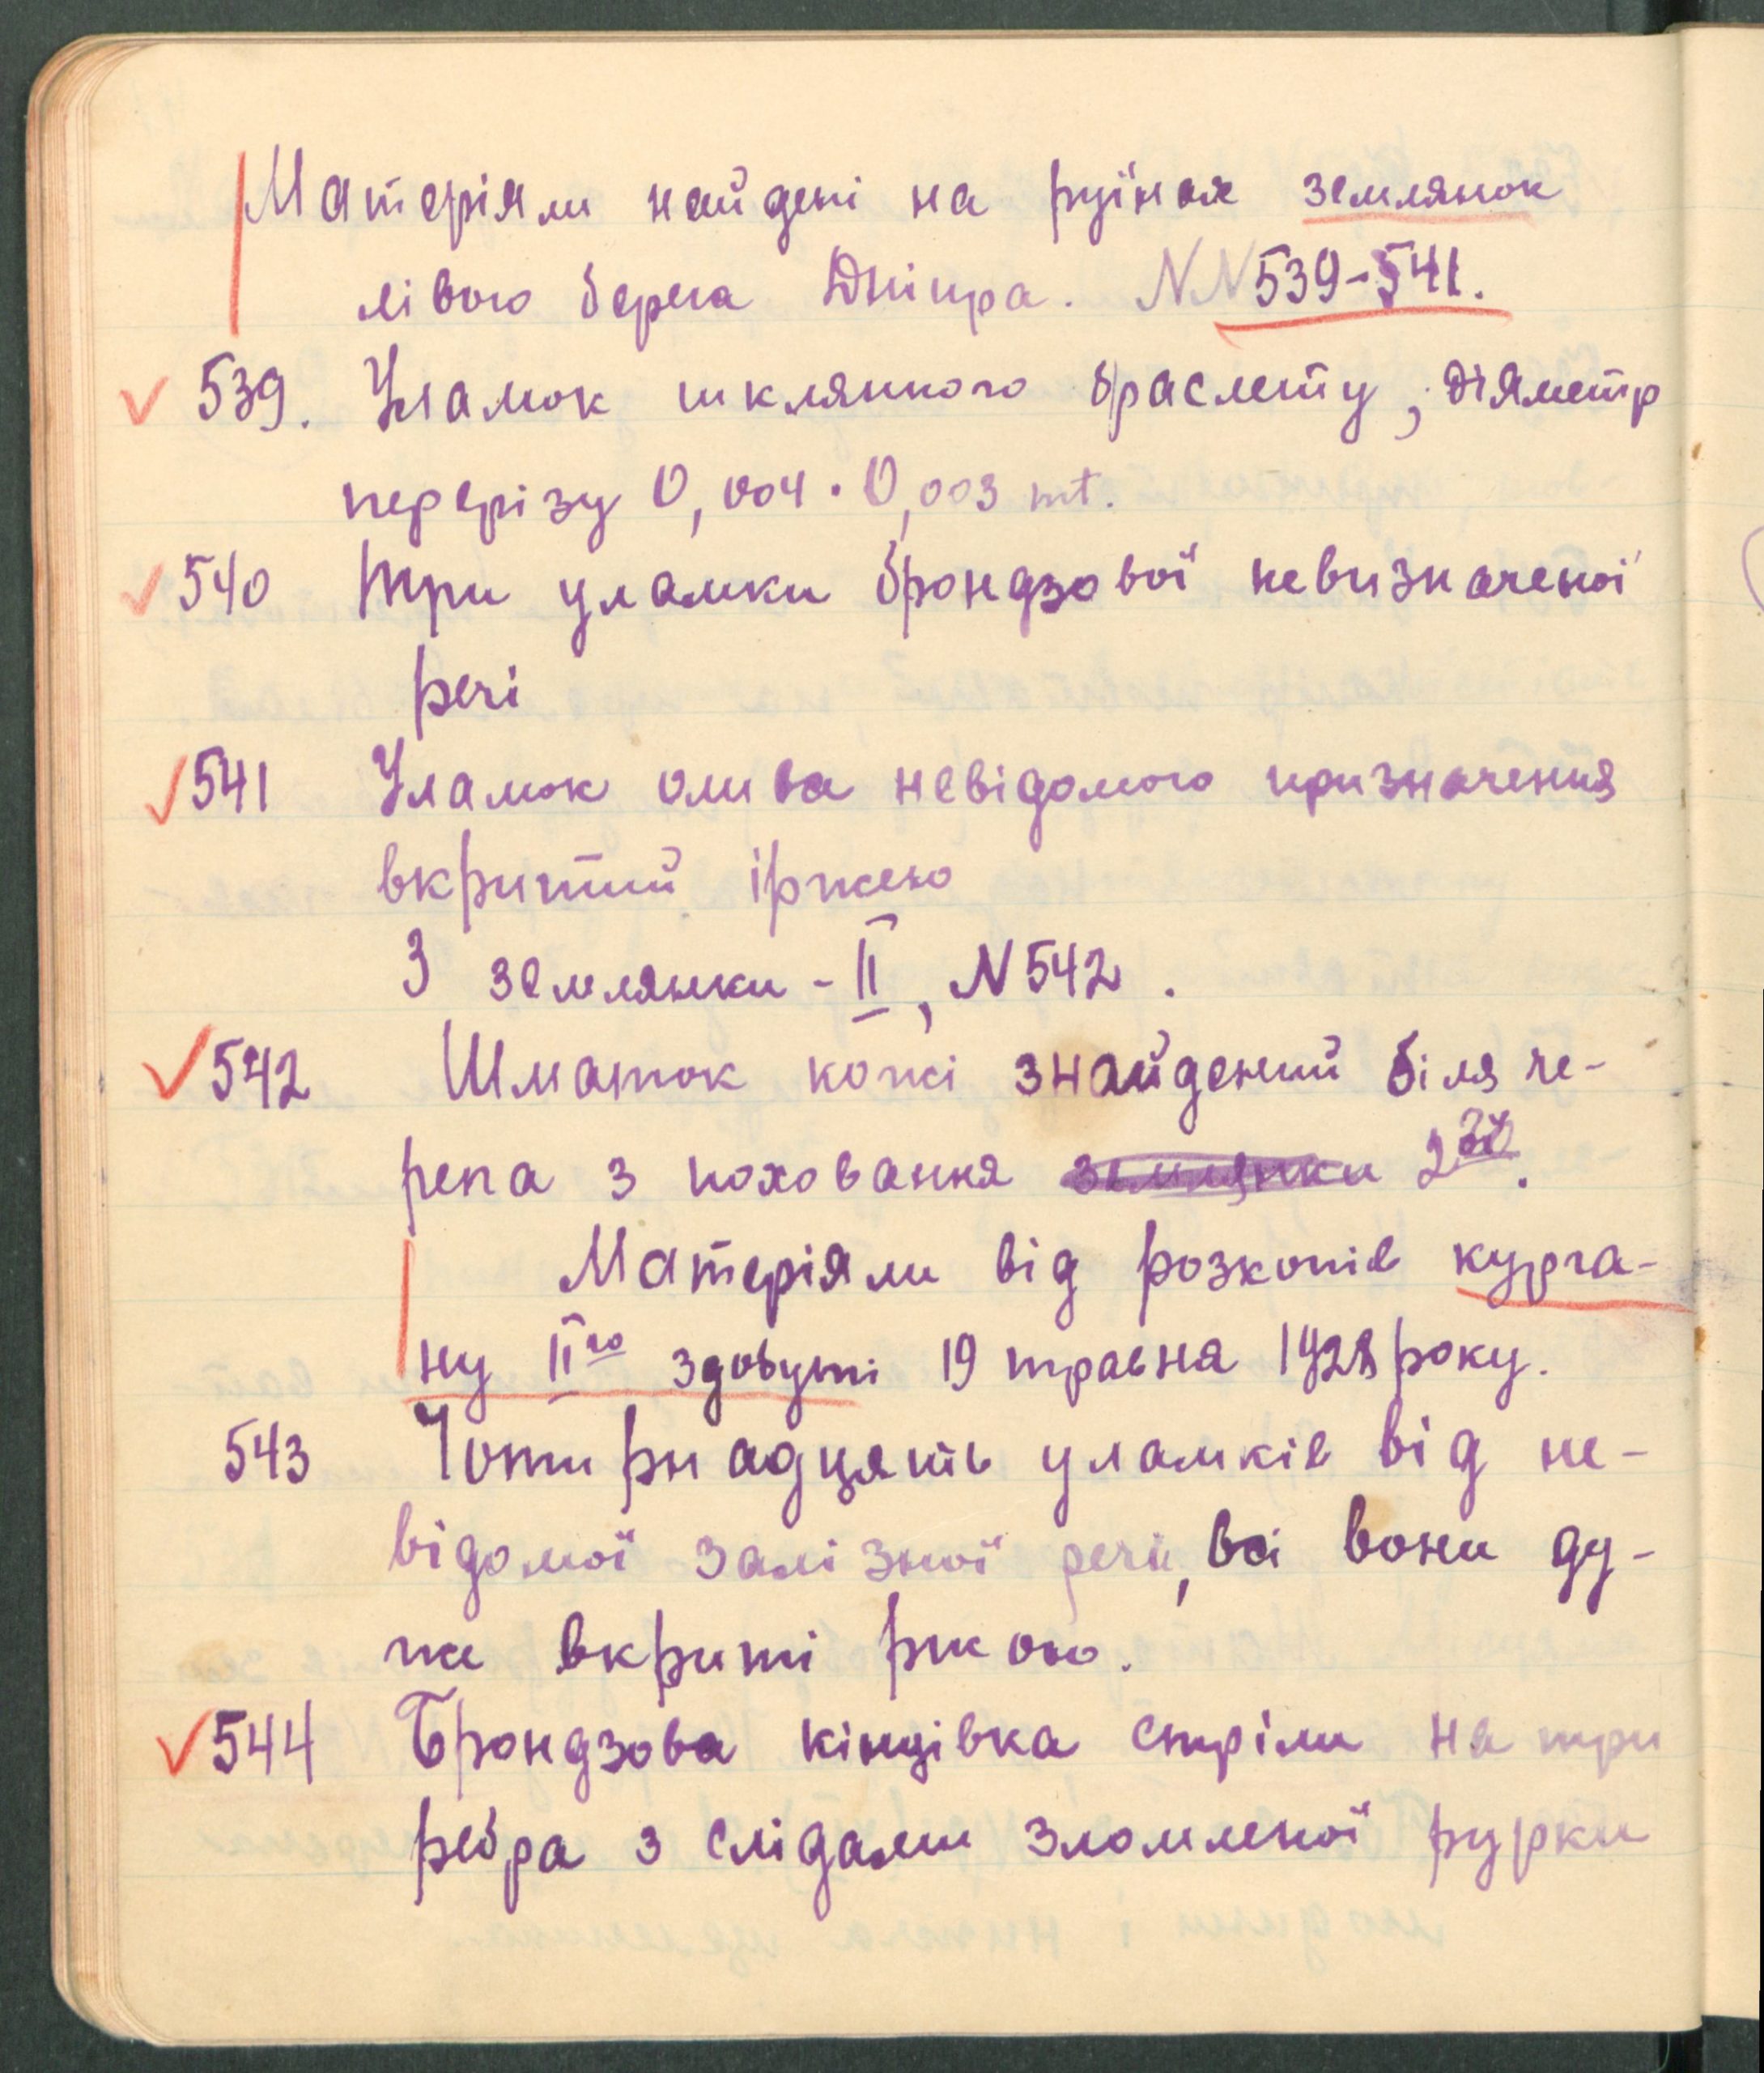 Матеріяли найдені на руїнах землянок
лівого берега Дніпра. NN 539-541.
539. Уламок шклянного браслету, діяметр
перерізу 0,004 · 0,003 mt.
540 Три уламки брондзової невизначеної
речі
541 Уламок олива невідомого призначення
вкритий іржею
З землянки - II, N 542.
542 Шматок кожі знайдений біля че-
репа з поховання землянки 2
Матеріяли від розкопів курга-
ну II го здобуті 19 травня 1928 року.
543 Чотирнадцять уламків від не-
відомої залізної речи, всі вони ду-
же вкриті ржою.
544 Брондзова кінцівка стріли на три
ребра з слідами зломленої рурки